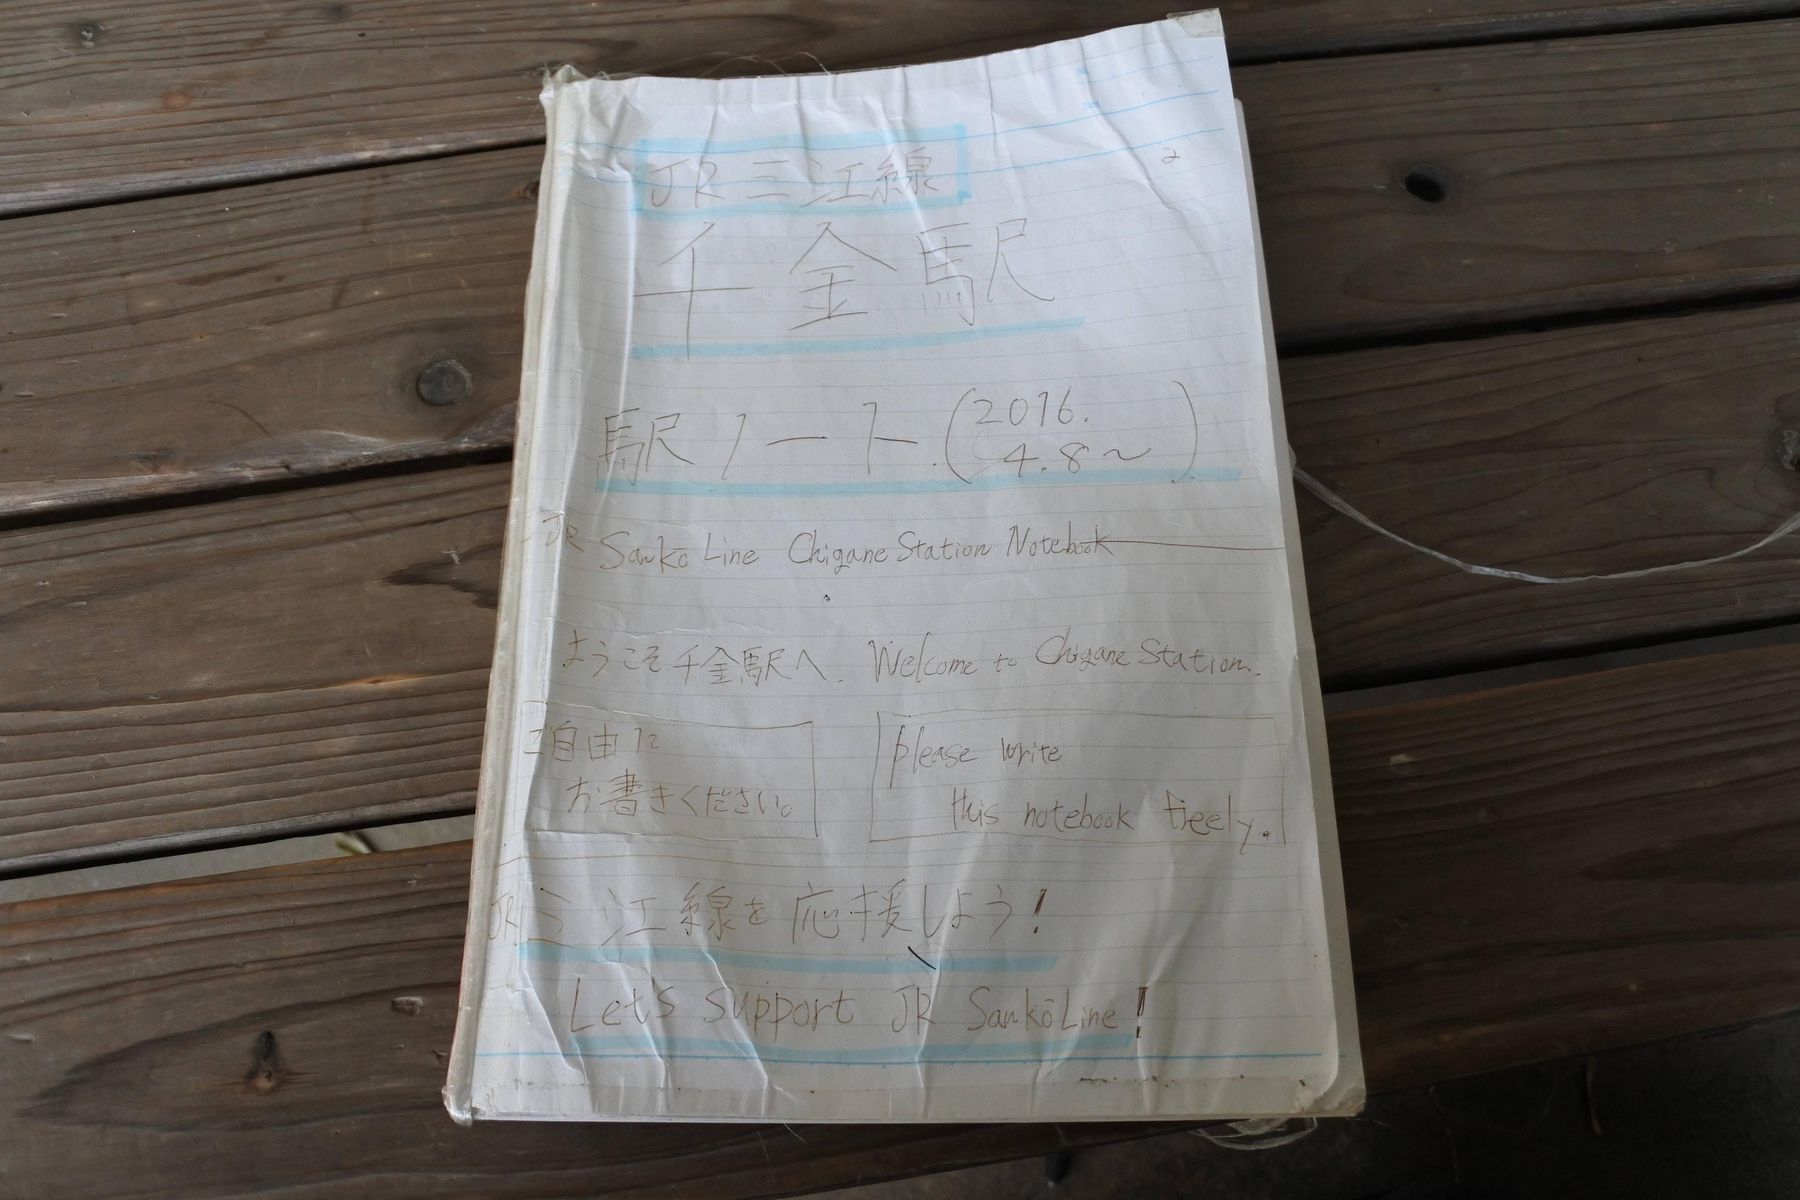 No.
Date
2
JR三江線
千金駅
駅ノート(2016.
4.8~)
JR Sanko Line Chigane Station Notebook
ようこそ千金駅へ. Welcome to Chigane Station.
ご自由に
お書きください。
please write
this notebook freely.
JR三江線を応援しよう!
Let's support JR Sankō Line!